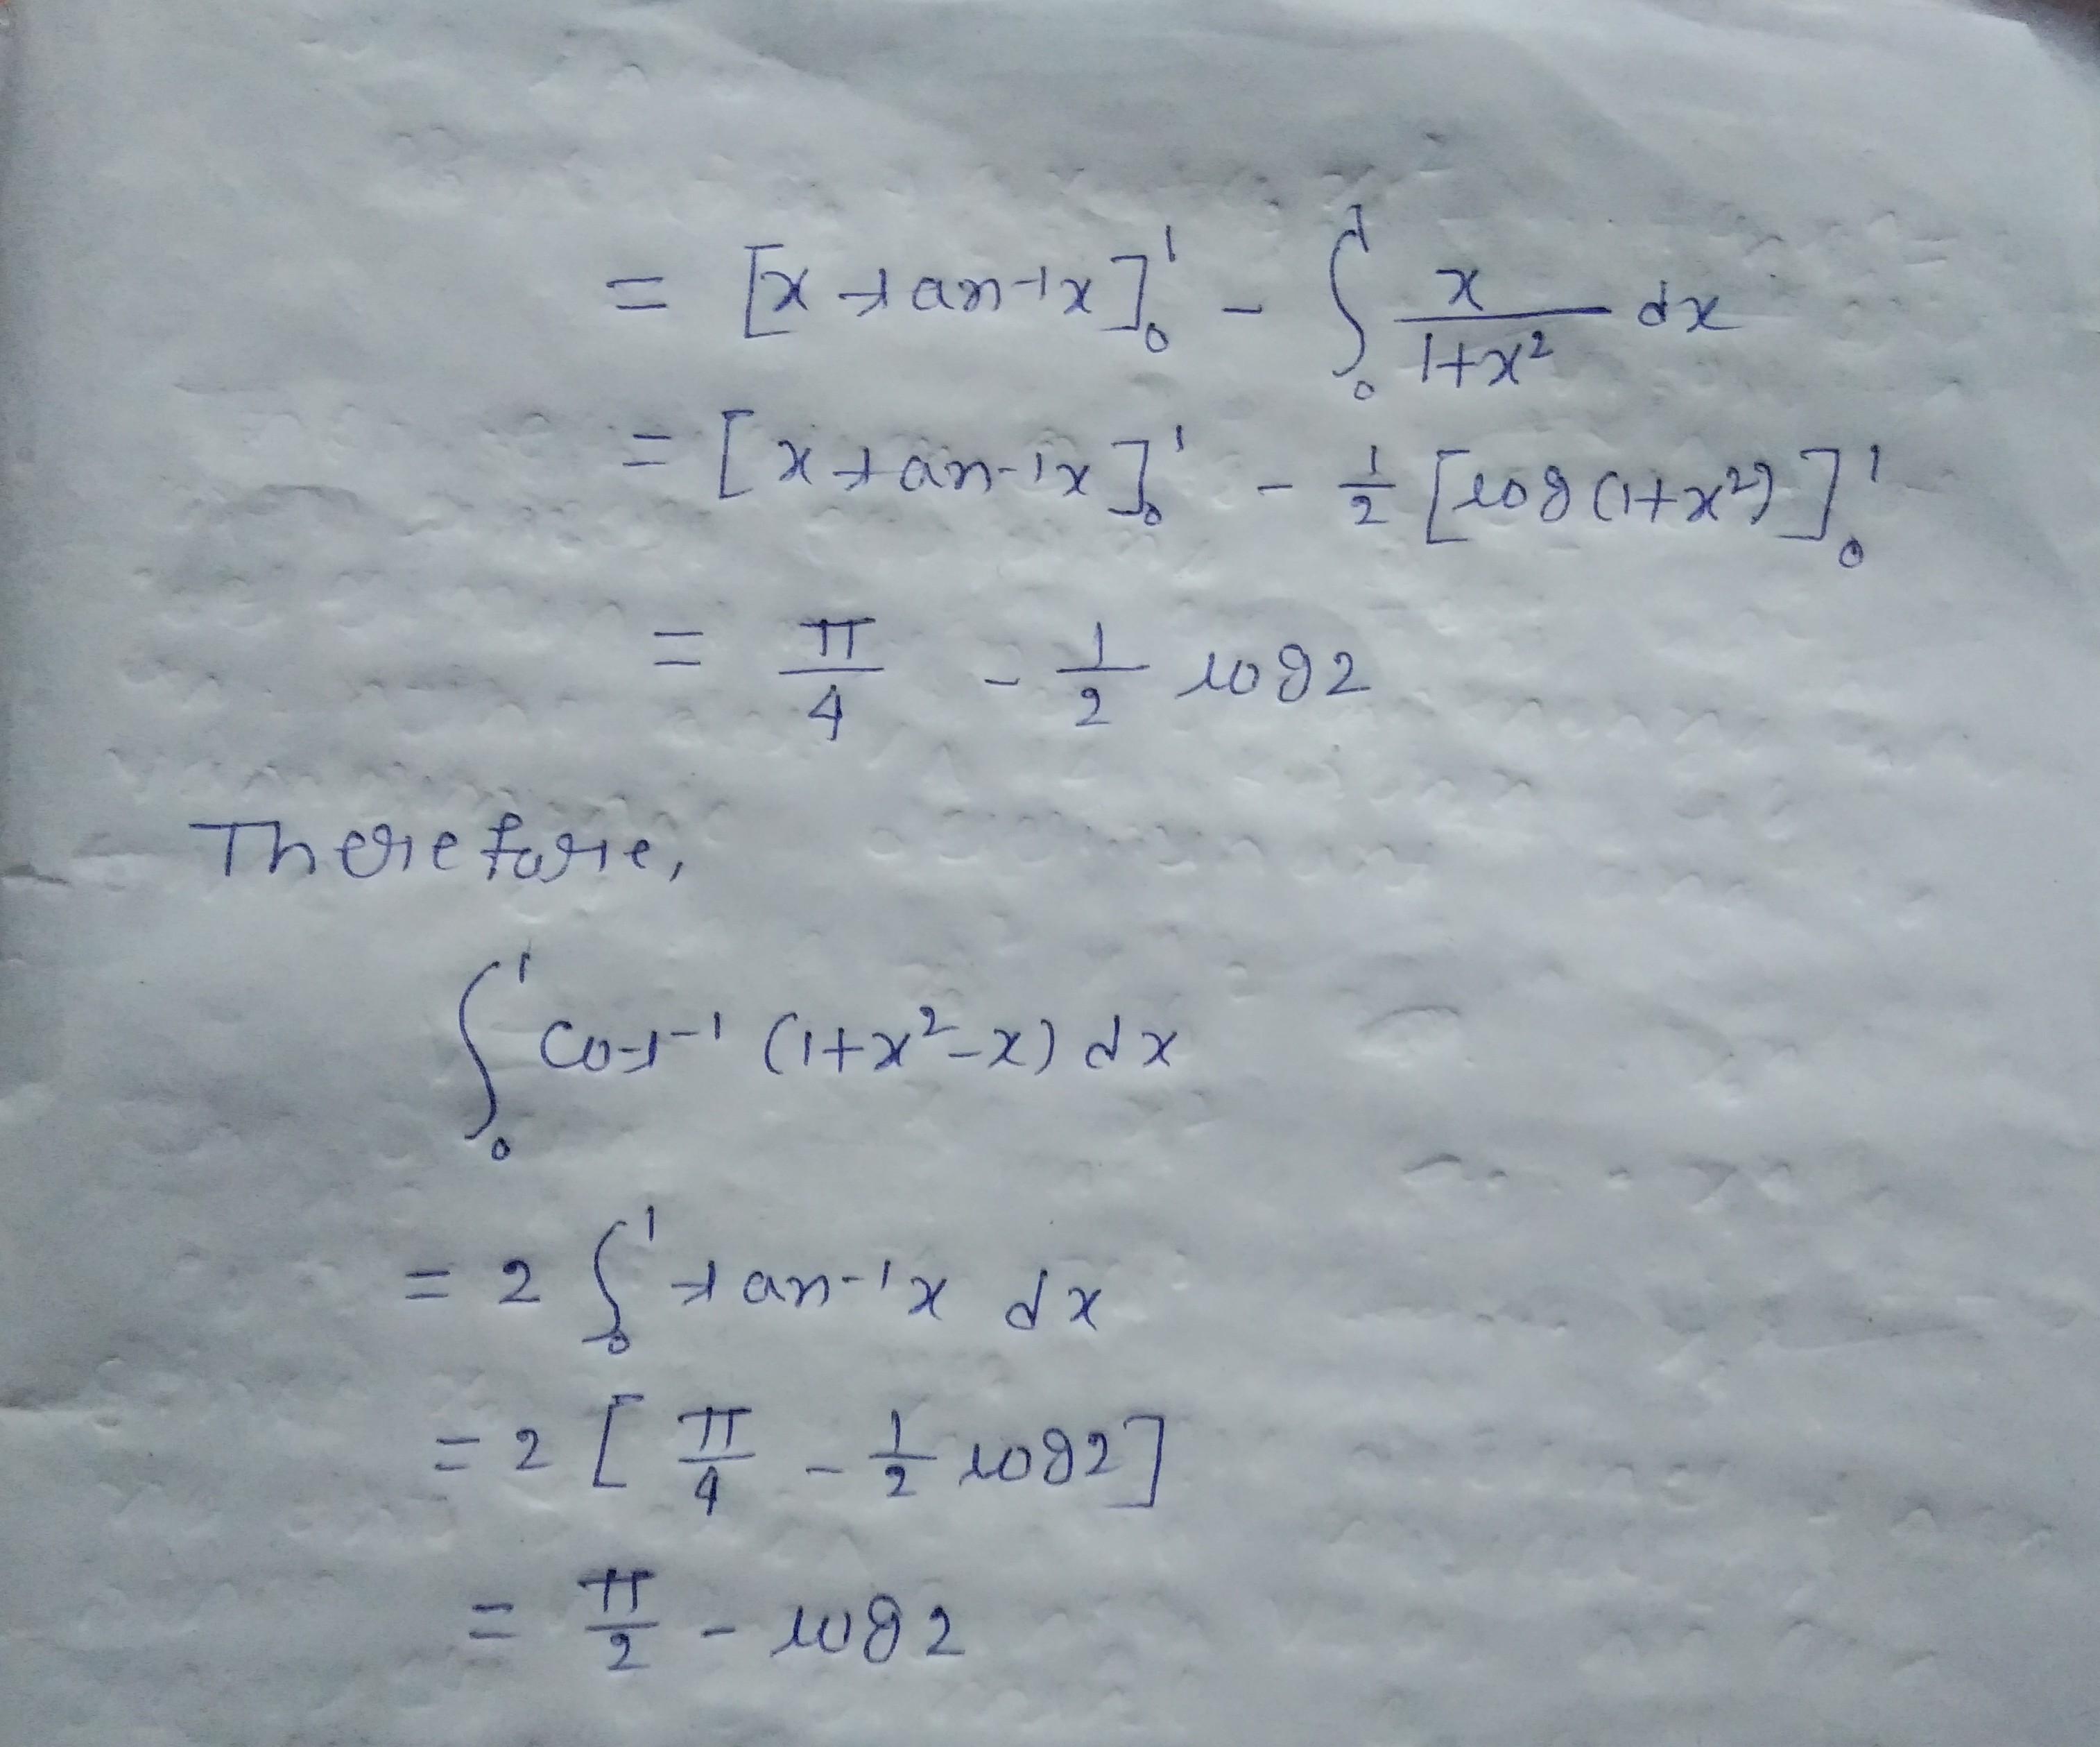 = [x tan-1x]₀¹ - ∫₀¹ x/(1+x²) dx
= [x tan-1x]₀¹ - 1/2 [log (1+x²)]₀¹
= π/4 - 1/2 log 2
Therefore,
∫₀¹ cot⁻¹ (1+x²-x) dx
= 2 ∫₀¹ tan-1x dx
= 2 [π/4 - 1/2 log 2]
= π/2 - log 2